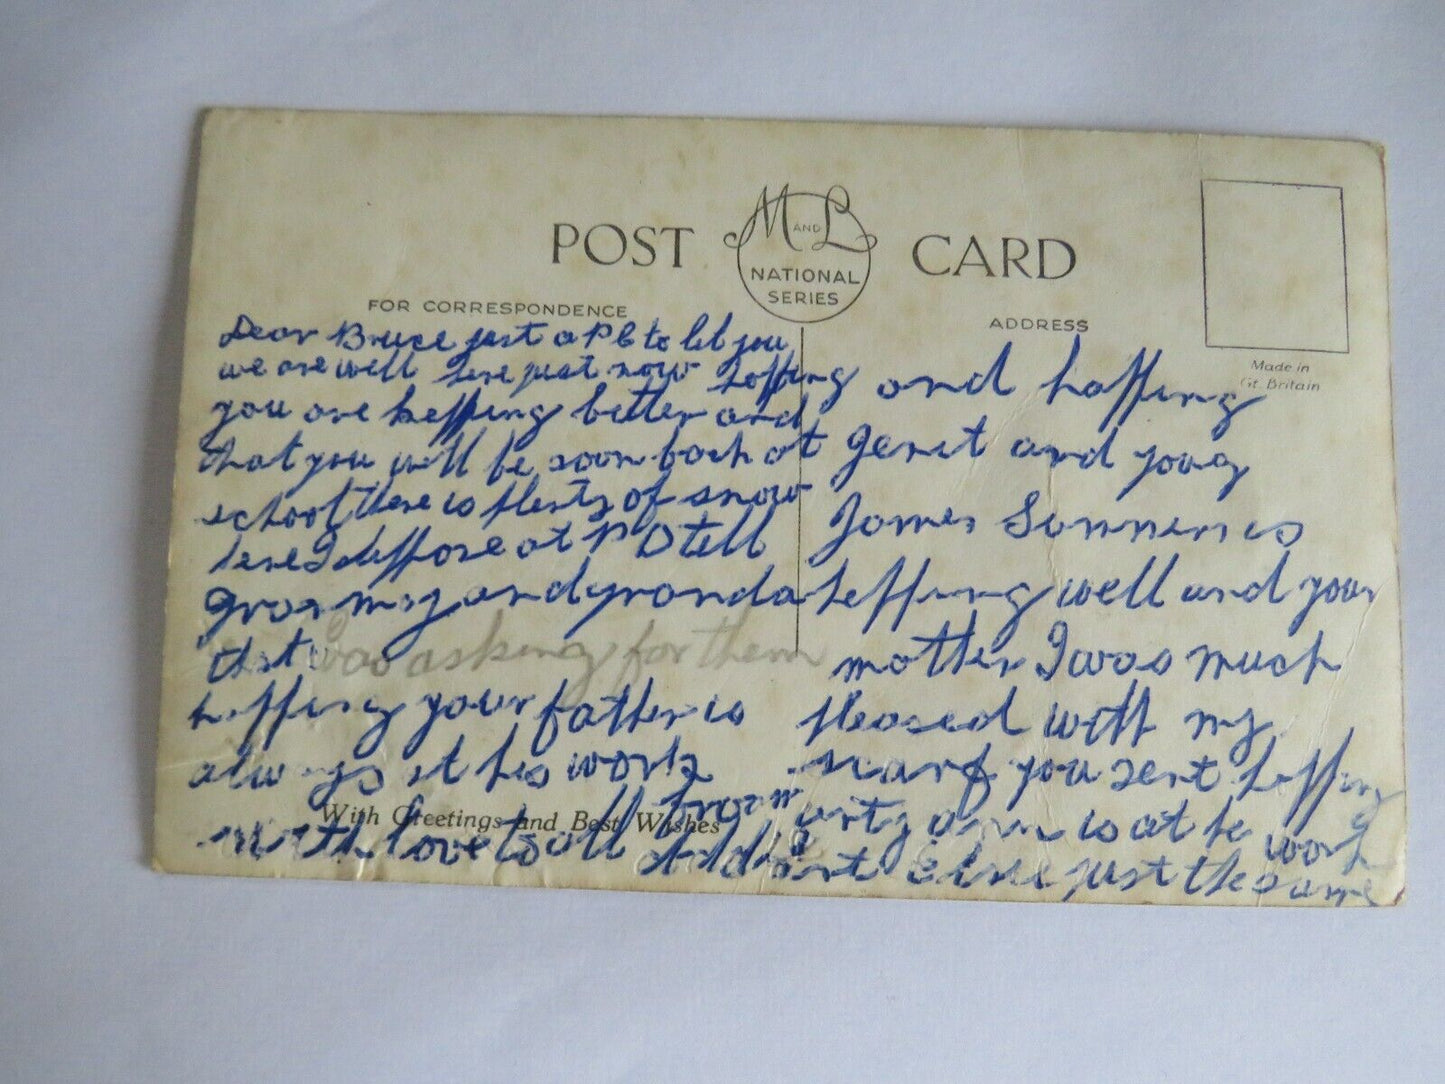 POST CARD
M AND L
NATIONAL
SERIES
FOR CORRESPONDENCE
ADDRESS
Made in
Gt. Britain
Dear Bruce just a P C to let you
we are well here just now hopping
you are kepping better and
that you will be soon back at
school there is plenty of snow
here I suppose at P O tell
granny and granda
that I was asking for them
hopping your father is
always at his work
With Greetings and Best Wishes
with love to all from
and hopping
Jenet and young
James Sommer is
kepping well and your
mother I was much
pleased with my
scarf you sent hopping
is at he work
just the same